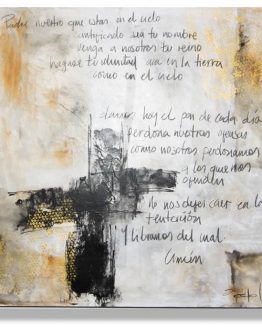 Padre nuestro que estas en el cielo
santificado sea tu nombre
venga a nosotros tu reino
hagase tu voluntad asi en la tierra
como en el cielo
danos hoy el pan de cada dia
perdona nuestras ofensas
como nosotros perdonamos
a los que nos
ofenden
No nos dejes caer en la
tentación
y libranos del mal.
Amén